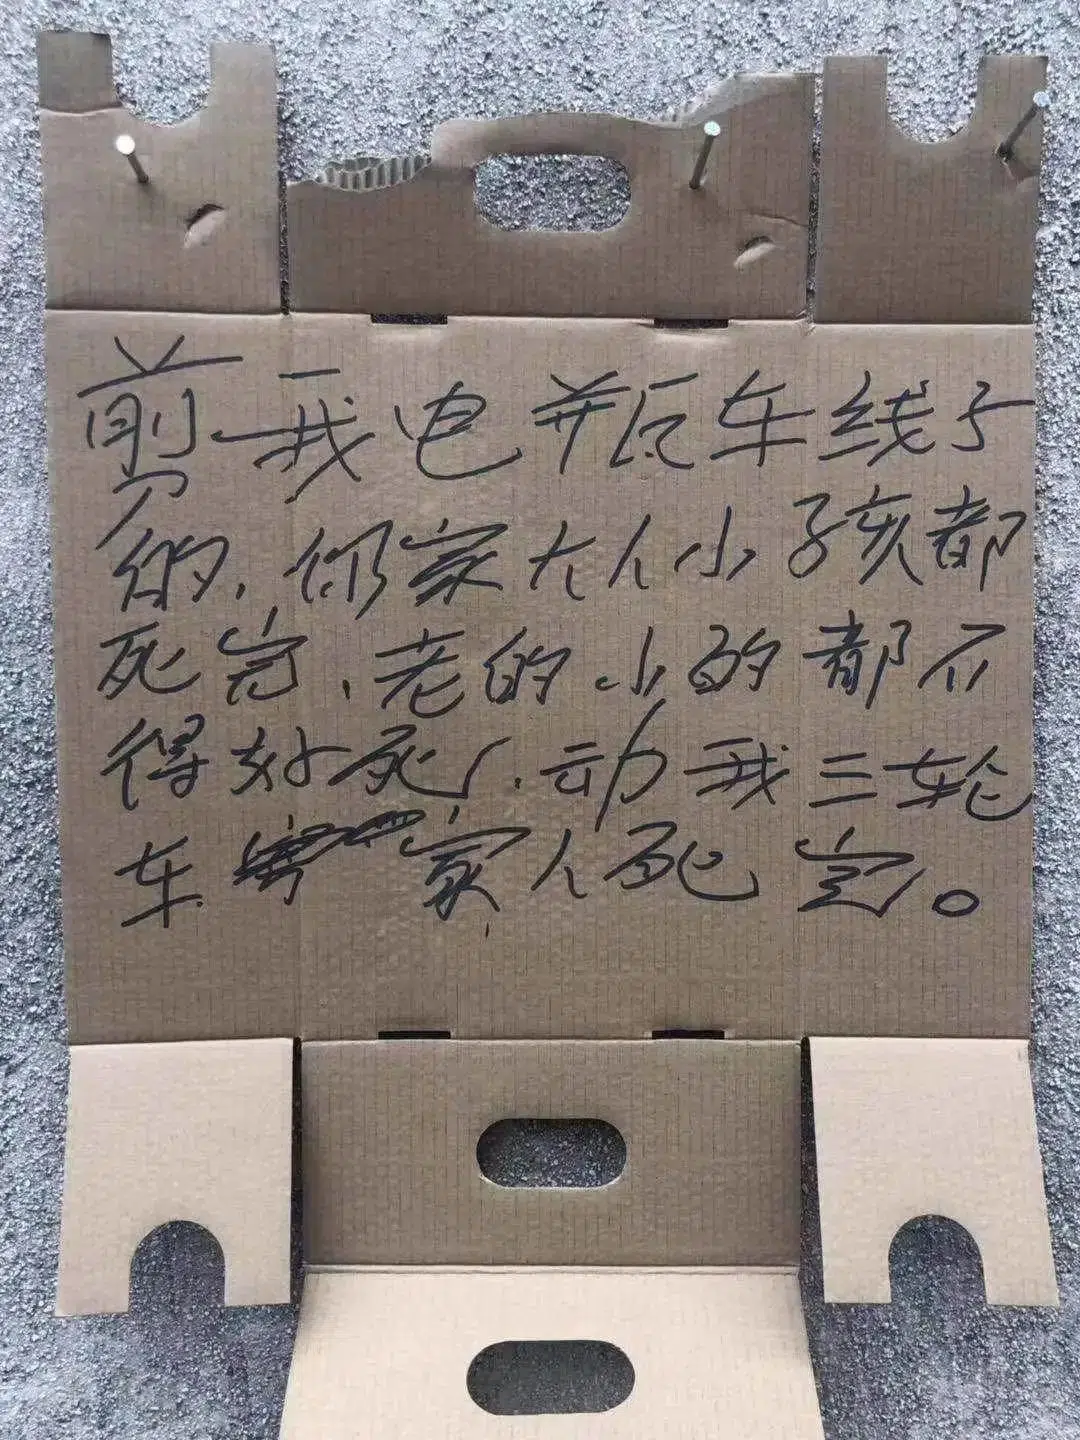 剪我电并瓦车线子
的，你家大人小孩都
死完，老的小的都不
得好死，动我三轮
车家人死完。